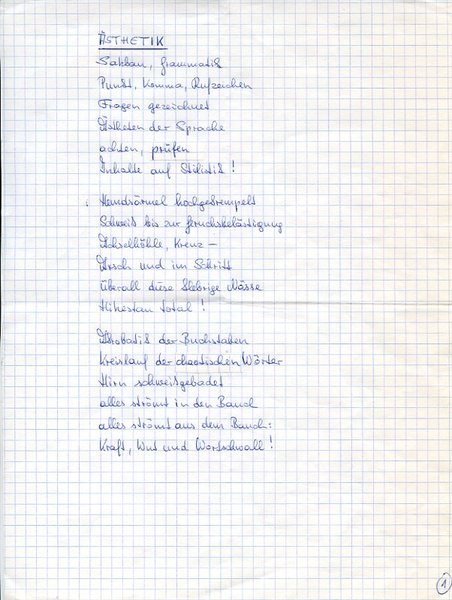 ÄSTHETIK
Satzbau, Grammatik
Punkt, Komma, Rufzeichen
Fragen gezeichnet
Ästheten der Sprache
achten, prüfen
Inhalte auf Stilistik!
Hemdsärmel hochgekrempelt
Schweiß bis zur Geruchsbelästigung
Achselhöhle, Kreuz –
Arsch und im Schritt
überall diese klebrige Nässe
total!
Akrobatik der Buchstaben
Kreislauf der chaotischen Wörter
Hirn schweißgebadet
alles strömt in den Bauch
alles strömt aus dem Bauch:
Kraft, Wut und Wortschwall!
1